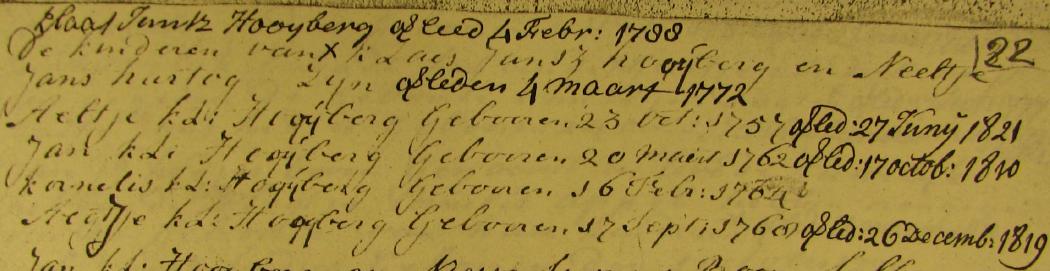 klaas Jansz Hooyberg afleed 4 Febr: 1788
De kinderen van x klaes Jansz hooyberg en Neeltje 22
Jans hartog Zyn afleden 4 Maart 1772
Aeltje kL: Hooyberg Gebooren 23 oct: 1757 afled: 27 Juny 1821
Jan kL: Hooyberg Gebooren 20 Maert 1762 afled: 17 octob: 1810
kornelis kL: Hooyberg Gebooren 16 Febr: 1764
Aegtje kL: Hooyberg Gebooren 17 Sept: 1768 afled: 26 Decemb: 1819
Jan kL: Hooyberg en